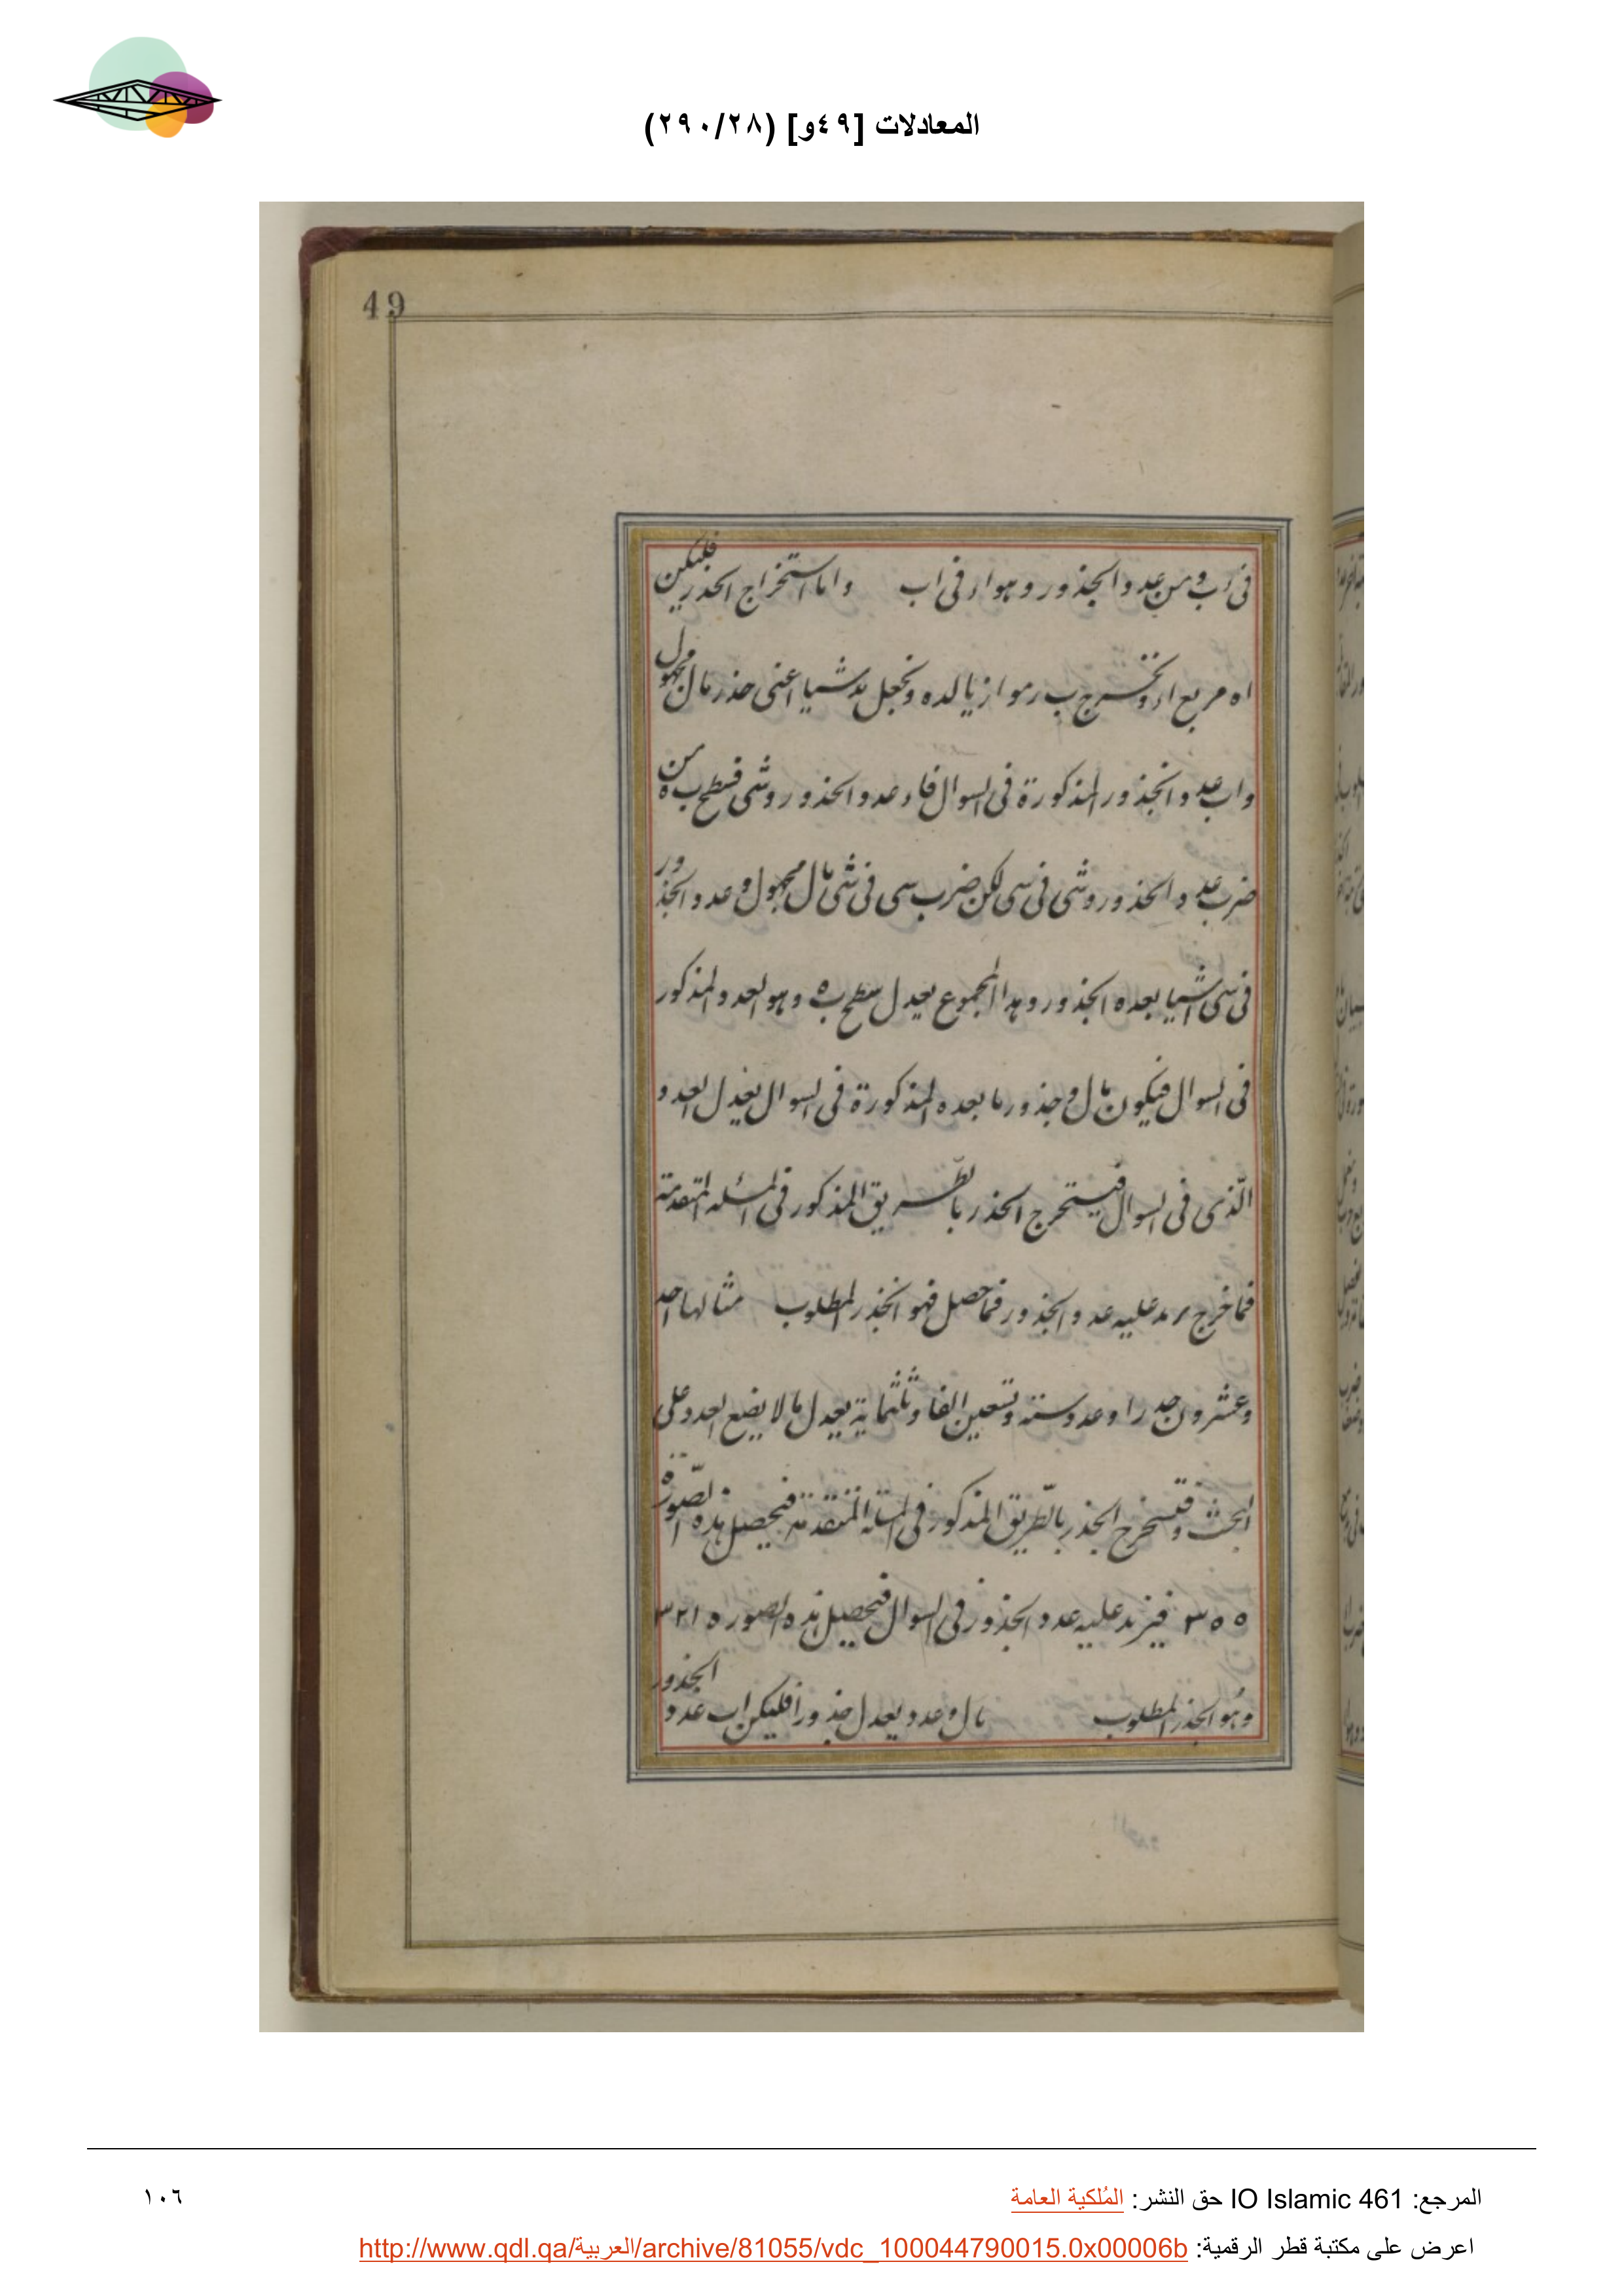 المعادلات [٤٩و] (٢٩٠/٢٨)
49
في ا ب ومن عدد الجذور وهو ا ر في اب واما استخراج الجذر فليكن
اه مربع ار ونخرج ب ر موازيا لده ونجعل بد شيا اعنى جذر مال مجهول
واب عدد الجذور المذكورة في السوال فا د عدد الجذور وشى فسطح ب ه من
ضرب عدد الجذور وشى في سى لكن ضرب سى في شى مال مجهول و عدد الجذور
في سى اشيا بعده الجذور وهذا المجموع يعدل سطح ب ه وهو العدد المذكور
في السوال فيكون مال وجذور ما بعده المذكورة في السوال يعدل العدد
الّذى في السوال فيستخرج الجذر بالطّريق المذكور في المسئله المتقدمة
فما خرج نريد عليه عدد الجذور فما حصل فهو الجذر المطلوب مثالها احد
وعشرون جدرا وعدد ستة وتسعين الفا وثلثمائة يعدل مالا يضع العدد على
التخت ونستخرج الجذر بالطّريق المذكور في المسئلة المتقدمة فيحصل هذه الصّورة
٣٠٠ فيزيد عليه عدد الجذور في السوال فيحصل هذه الصوره ٣٢١
وهُو الجذر المطلوب مال وعدد يعدل جذورا فليكن اب عدد الجذور
المرجع: IO Islamic 461 حق النشر: المُلكية العامة
١٠٦
اعرض على مكتبة قطر الرقمية: http://www.qdl.qa/العربية/archive/81055/vdc_100044790015.0x00006b